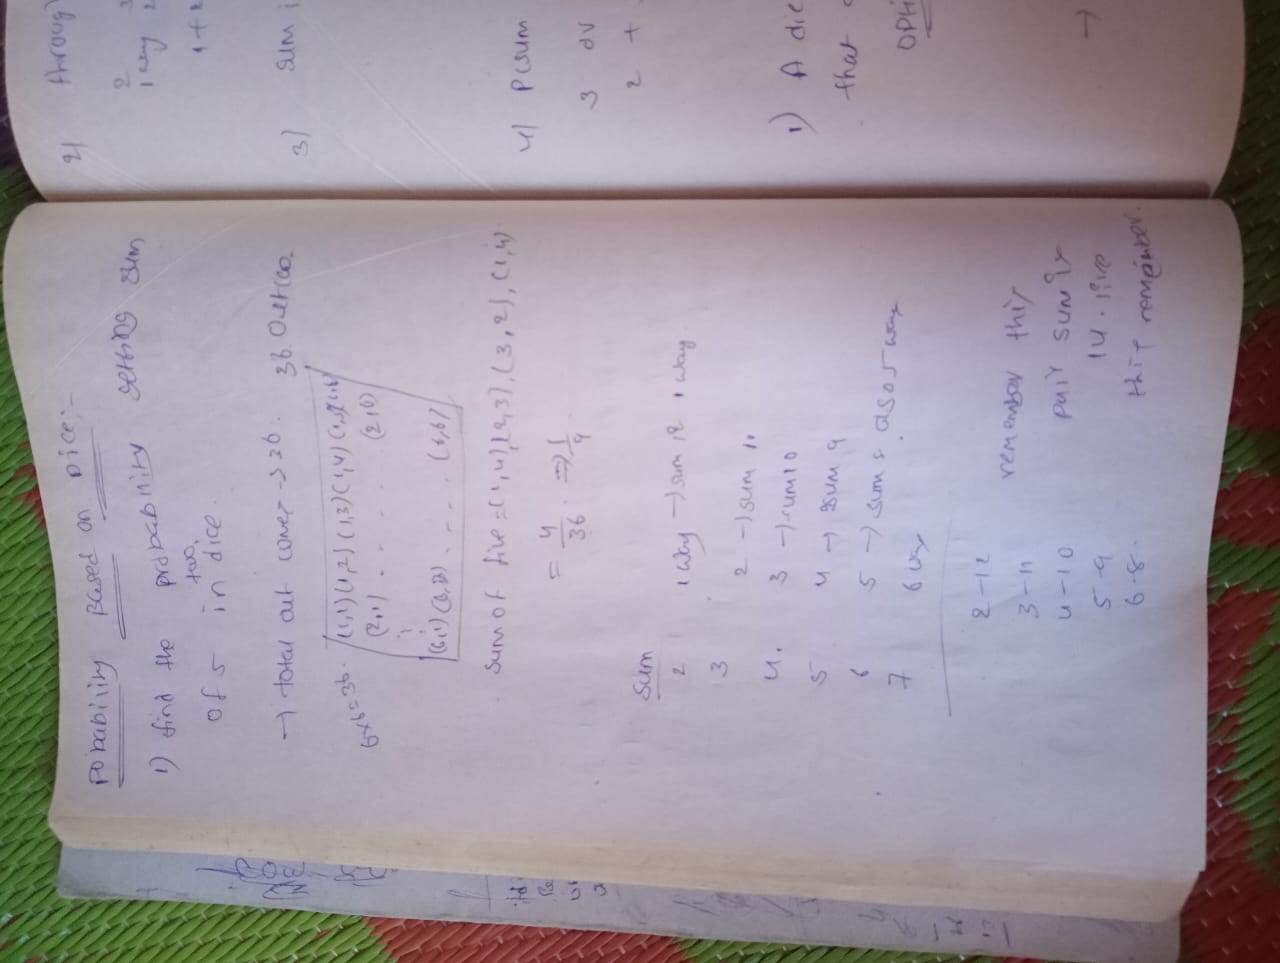 Pobability Based on Dice:-
1) find the probability getting sum
of 5 in two dice
→ total out comes → 36. 36 
6×6=36. (1,1) (1,2) (1,3) (1,4)
(2,1) . . . . (2,6)
(6,1) (6,2) . - - . (6,6)
sum of five = (1,4), (2,3), (3,2), (1,4)
= 4/36 . ⇒ 1/9
Sum
2 1 way → sum 12 1 way
3 2 → sum 11
4. 3 → sum 10
5 4 → sum 9
6 5 → sum 8 . also 5 way
7 6 way
2-12 remember this
3-11 pair sum is
4-10 14. like
5-9 this remember.
6-8.
2) through
2
1 way
1+
3) sum i
4) P(sum
3 or
2 +
1) A die
that
→